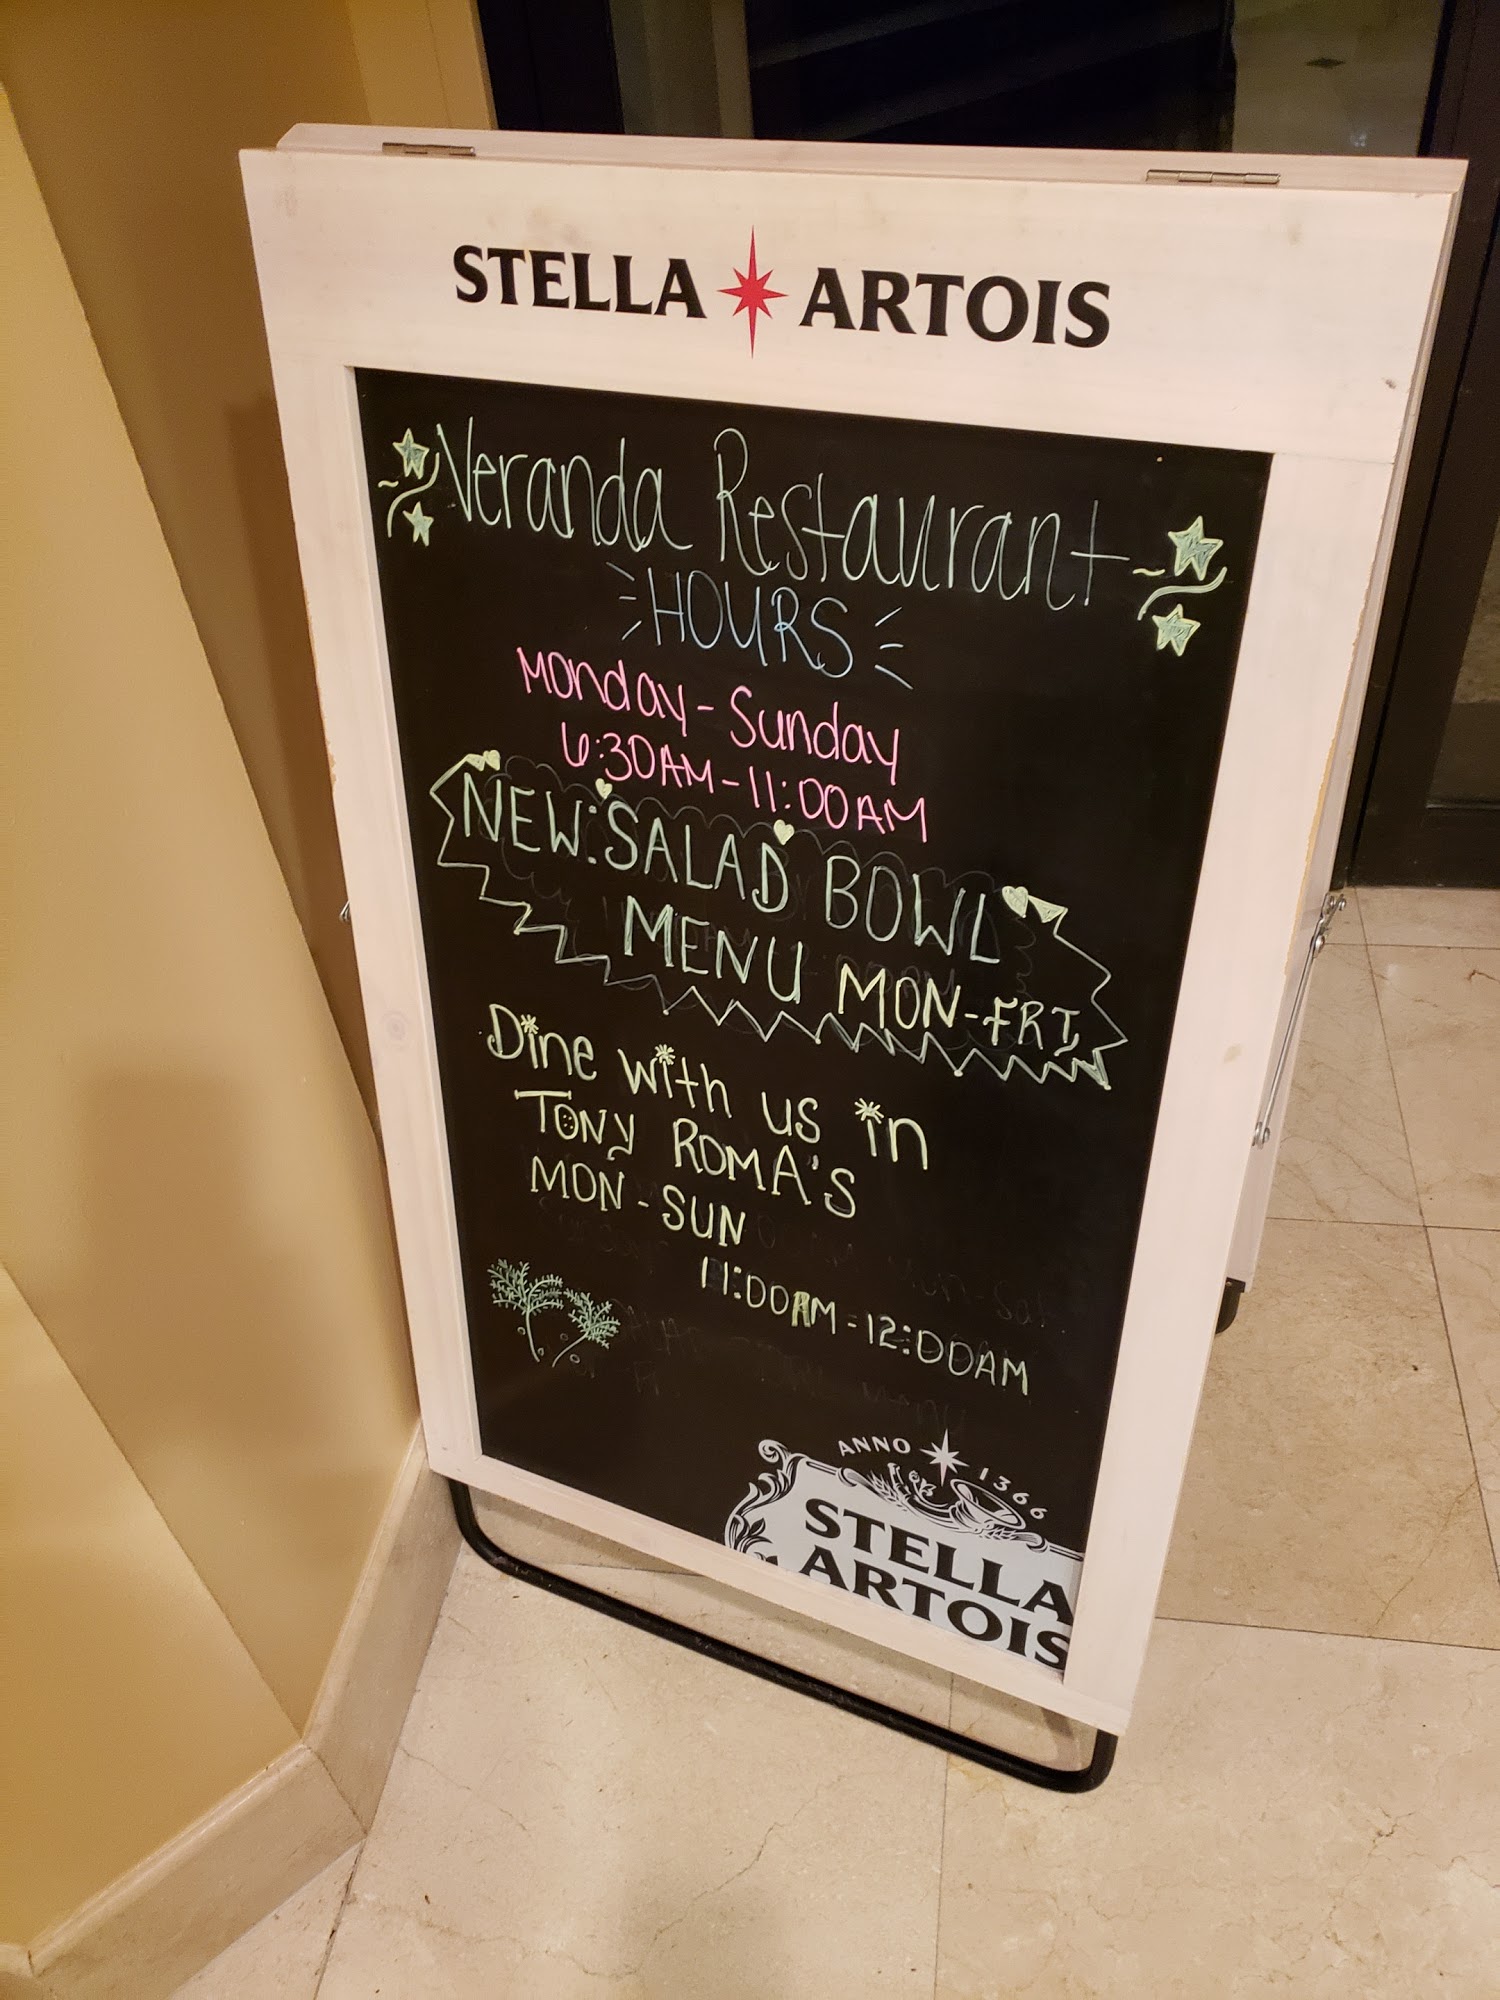 STELLA ARTOIS
Veranda Restaurant
HOURS
Monday - Sunday
6:30AM - 11:00AM
NEW: SALAD BOWL
MENU MON-FRI
Dine with us in
TONY ROMA'S
MON - SUN
11:00AM - 12:00AM
ANNO 1366
STELLA
ARTOIS